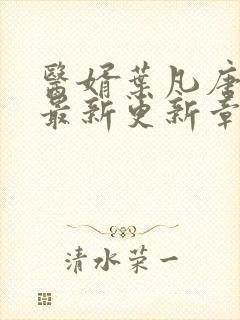 醫婿葉凡唐
最新更新章
清水荣一